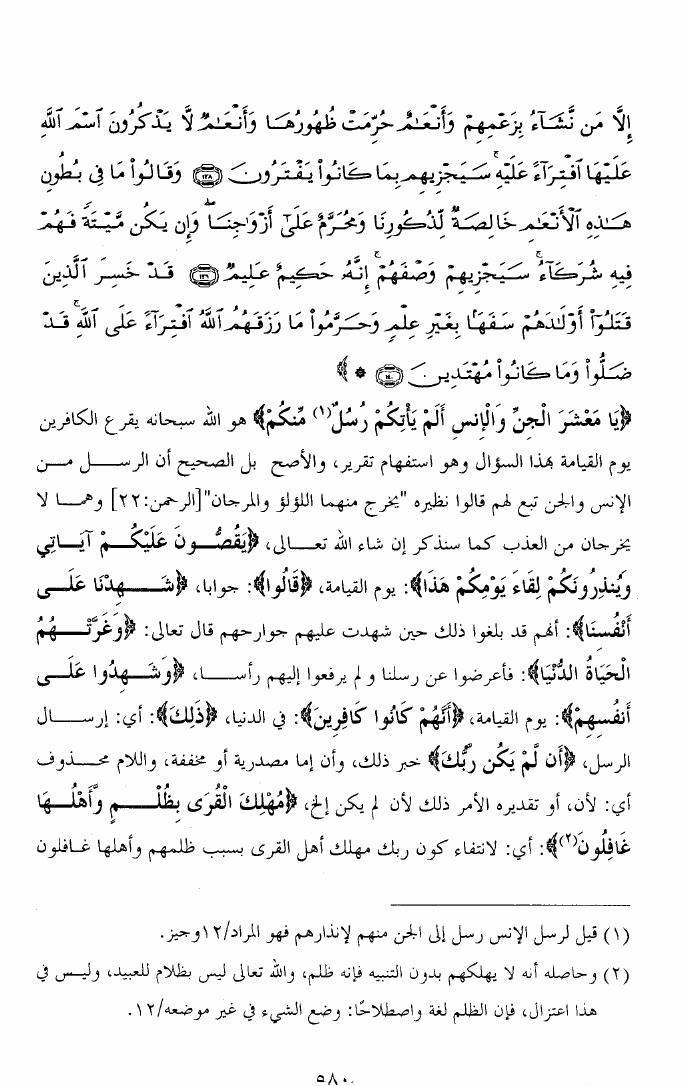 إِلَّا مَن نَّشَآءُ بِزَعْمِهِمْ وَأَنْعَٰمٌ حُرِّمَتْ ظُهُورُهَا وَأَنْعَٰمٌ لَّا يَذْكُرُونَ ٱسْمَ ٱللَّهِ
عَلَيْهَا ٱفْتِرَآءً عَلَيْهِ ۚ سَيَجْزِيهِم بِمَا كَانُوا۟ يَفْتَرُونَ ﴿١٣٨﴾ وَقَالُوا۟ مَا فِى بُطُونِ
هَٰذِهِ ٱلْأَنْعَٰمِ خَالِصَةٌ لِّذُكُورِنَا وَمُحَرَّمٌ عَلَىٰٓ أَزْوَٰجِنَا ۖ وَإِن يَكُن مَّيْتَةً فَهُمْ
فِيهِ شُرَكَآءُ ۚ سَيَجْزِيهِمْ وَصْفَهُمْ ۚ إِنَّهُۥ حَكِيمٌ عَلِيمٌ ﴿١٣٩﴾ قَدْ خَسِرَ ٱلَّذِينَ
قَتَلُوٓا۟ أَوْلَٰدَهُمْ سَفَهًۢا بِغَيْرِ عِلْمٍ وَحَرَّمُوا۟ مَا رَزَقَهُمُ ٱللَّهُ ٱفْتِرَآءً عَلَى ٱللَّهِ ۚ قَدْ
ضَلُّوا۟ وَمَا كَانُوا۟ مُهْتَدِينَ ﴿١٤٠﴾ * ﴾
﴿يَا مَعْشَرَ الْجِنِّ وَالْإِنسِ أَلَمْ يَأْتِكُمْ رُسُلٌ(١) مِّنكُمْ﴾ هو الله سبحانه يقرع الكافرين
يوم القيامة بهذا السؤال وهو استفهام تقرير، والأصح بل الصحيح أن الرسل من
الإنس والجن تبع لهم قالوا نظيره "يخرج منهما اللؤلؤ والمرجان"[الرحمن:٢٢] وهما لا
يخرجان من العذب كما سنذكر إن شاء الله تعالى، ﴿يَقُصُّونَ عَلَيْكُمْ آيَاتِي
وَيُنذِرُونَكُمْ لِقَاءَ يَوْمِكُمْ هَذَا﴾: يوم القيامة، ﴿قَالُوا﴾: جوابا، ﴿شَهِدْنَا عَلَى
أَنْفُسِنَا﴾: أنهم قد بلغوا ذلك حين شهدت عليهم جوارحهم قال تعالى: ﴿وَغَرَّتْهُمُ
الْحَيَاةُ الدُّنْيَا﴾: فأعرضوا عن رسلنا و لم يرفعوا إليهم رأسا، ﴿وَشَهِدُوا عَلَى
أَنفُسِهِمْ﴾: يوم القيامة، ﴿أَنَّهُمْ كَانُوا كَافِرِينَ﴾: في الدنيا، ﴿ذَلِكَ﴾: أي: إرسال
الرسل، ﴿أَن لَّمْ يَكُن رَّبُّكَ﴾ خبر ذلك، وأن إما مصدرية أو مخففة، واللام محذوف
أي: لأن، أو تقديره الأمر ذلك لأن لم يكن إلخ، ﴿مُهْلِكَ الْقُرَى بِظُلْمٍ وَأَهْلُهَا
غَافِلُونَ(٢)﴾: أي: لانتفاء كون ربك مهلك أهل القرى بسبب ظلمهم وأهلها غافلون
(١) قيل لرسل الإنس رسل إلى الجن منهم لإنذارهم فهو المراد/١٢وجيز.
(٢) وحاصله أنه لا يهلكهم بدون التنبيه فإنه ظلم، والله تعالى ليس بظلام للعبيد، وليس في
هذا اعتزال، فإن الظلم لغة واصطلاحًا: وضع الشيء في غير موضعه/١٢.
٥٨٠